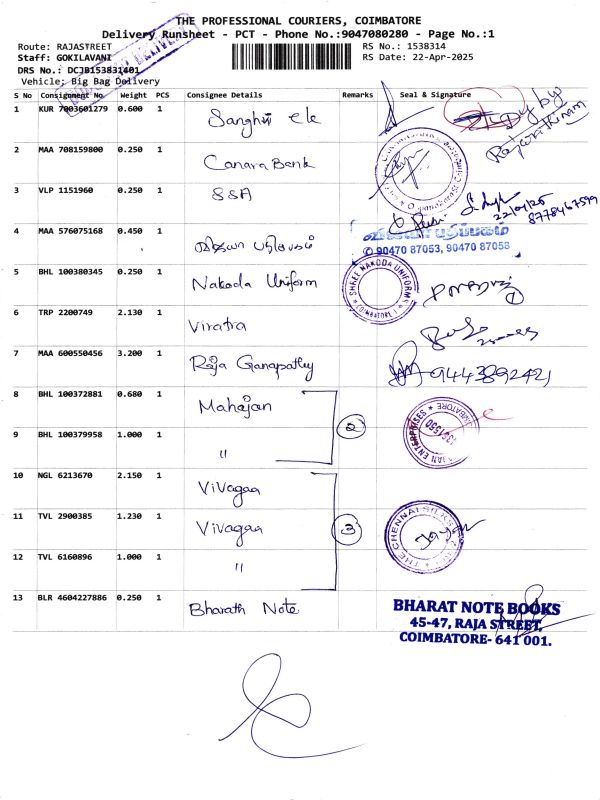 THE PROFESSIONAL COURIERS, COIMBATORE
Delivery Runsheet - PCT - Phone No.:9047080280 - Page No.:1
Route: RAJASTREET
RS No.: 1538314
Staff: GOKILAVANI
RS Date: 22-Apr-2025
DRS No.: DCJB153831401
Vehicle: Big Bag Delivery
S No Consignment No Weight PCS Consignee Details Remarks Seal & Signature
1 KUR 7003601279 0.600 1
2 MAA 708159800 0.250 1 Canara Bank
3 VLP 1151960 0.250 1 SSA
22/04/25
8778467599
4 MAA 576075168 0.450 1
90470 87053, 90470 87058
5 BHL 100380345 0.250 1 Nakoda Uniform
SHREE NAKODA UNIFORMS
6 TRP 2200749 2.130 1 Viratra
7 MAA 600550456 3.200 1 Raja Ganapathy 9443892421
8 BHL 100372881 0.680 1 Mahajan
2
9 BHL 100379958 1.000 1 "
ENTERPRISES COIMBATORE
10 NGL 6213670 2.150 1 Vivagaa
11 TVL 2900385 1.230 1 Vivagaa
3
THE CHENNAI SILKS
12 TVL 6160896 1.000 1 "
13 BLR 4604227886 0.250 1 Bharath Note
BHARAT NOTE BOOKS
45-47, RAJA STREET,
COIMBATORE- 641 001.